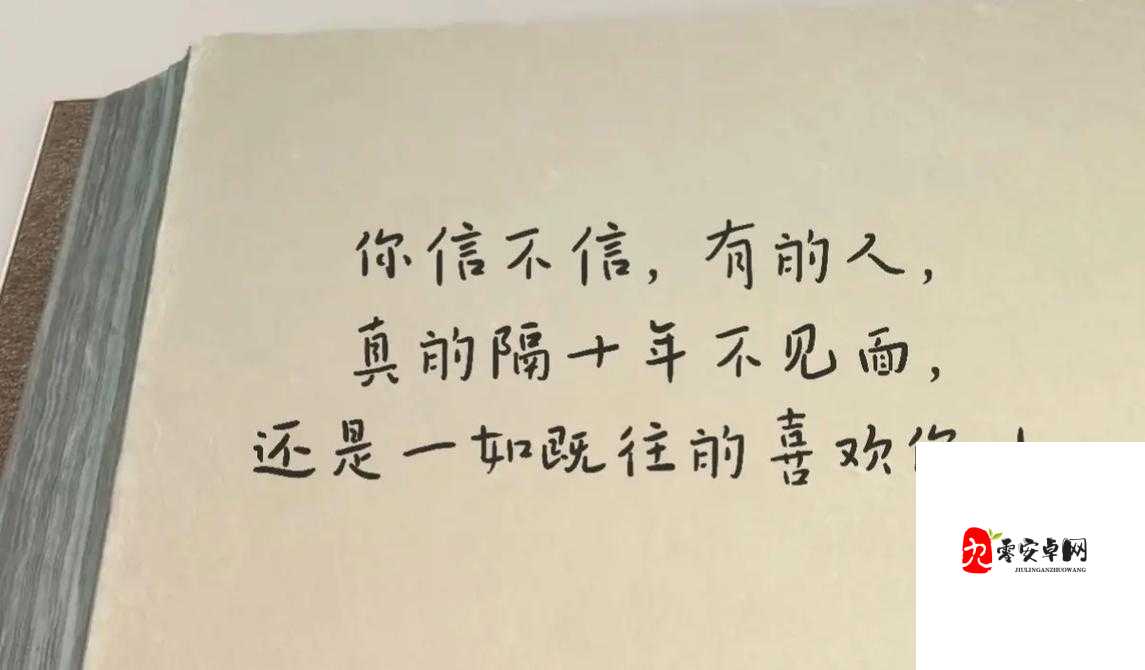 你信不信，有的人，
真的隔十年不见面，
还是一如既往的喜欢
九零安卓网
JIULINGANZHUOWANG